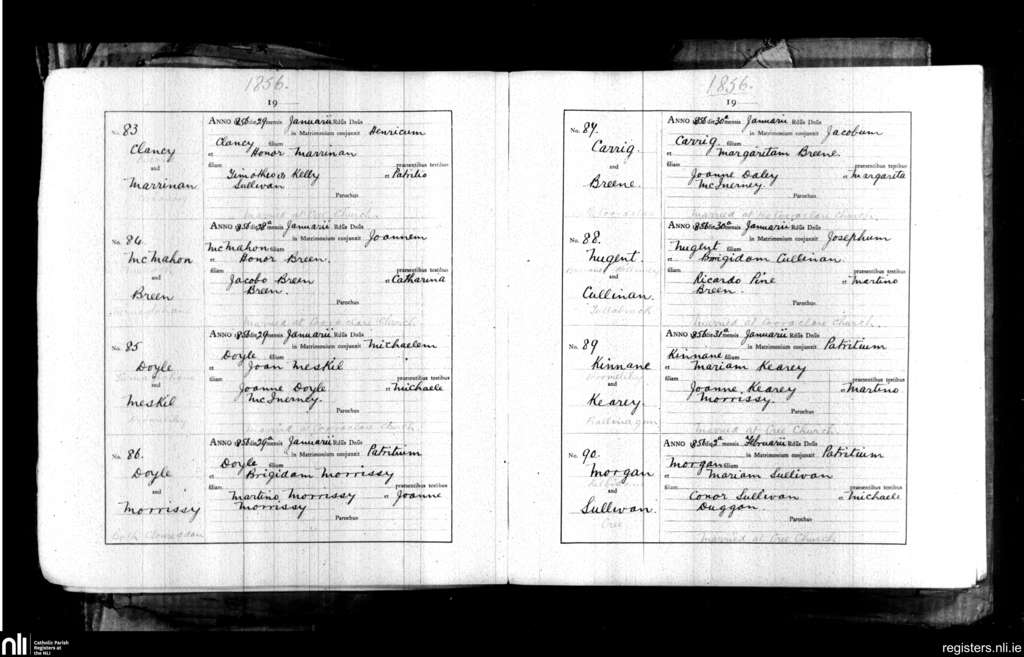 1856.
19
No. 83
Clancy
and
Marrinan
ANNO 1856 die 29 mensis Januarii Rdus Dnus
in Matrimonium conjunxit Henricum
Clancy filium
et Honor Marrinan
filiam praesentibus testibus
Timotheo Kelly et Patritio
Sullivan
Parochus
Married at Cree Church.
No. 84
McMahon
and
Breen
ANNO 1856 die 28a mensis Januarii Rdus Dnus
in Matrimonium conjunxit Joannem
McMahon filium
et Honor Breen.
filiam praesentibus testibus
Jacobo Breen et Catharina
Breen.
Parochus
Married at Cooraclare Church
No. 85
Doyle
and
Meskil
ANNO 1856 die 29 mensis Januarii Rdus Dnus
in Matrimonium conjunxit Michaelem
Doyle filium
et Joan Meskil
filiam praesentibus testibus
Joanne Doyle et Michaele
McInerney.
Parochus
Married at Cooraclare Church
No. 86.
Doyle
and
Morrissy
ANNO 1856 die 29a mensis Januarii Rdus Dnus
in Matrimonium conjunxit Patritium
Doyle filium
et Brigidam Morrissy
filiam praesentibus testibus
Martino Morrissy et Joanne
Morrissy
Parochus
1856.
19
No. 87.
Carrig
and
Breene.
ANNO 1856 die 30a mensis Januarii Rdus Dnus
in Matrimonium conjunxit Jacobum
Carrig filium
et Margaritam Breene.
filiam praesentibus testibus
Joanne Daley et Margareta
McInerney.
Parochus
Married at Cooraclare Church.
No. 88.
Nugent
and
Cullinan.
ANNO 1856 die 30a mensis Januarii Rdus Dnus
in Matrimonium conjunxit Josephum
Nugent filium
et Brigidam Cullinan.
filiam praesentibus testibus
Ricardo Pine et Martino
Breen.
Parochus
Married at Cooraclare Church.
No. 89
Kinnane
and
Kearey.
ANNO 1856 die 31a mensis Januarii Rdus Dnus
in Matrimonium conjunxit Patritium
Kinnane filium
et Mariam Kearey
filiam praesentibus testibus
Joanne Kearey et Martino
Morrissy.
Parochus
Married at Cree Church.
No. 90.
Morgan
and
Sullivan.
Cree
ANNO 1856 die 2a mensis Februarii Rdus Dnus
in Matrimonium conjunxit Patritium
Morgan filium
et Mariam Sullivan
filiam praesentibus testibus
Conor Sullivan et Michaele
Duggan.
Parochus
Married at Cree Church
nli Catholic Parish
Registers at
the NLI
registers.nli.ie